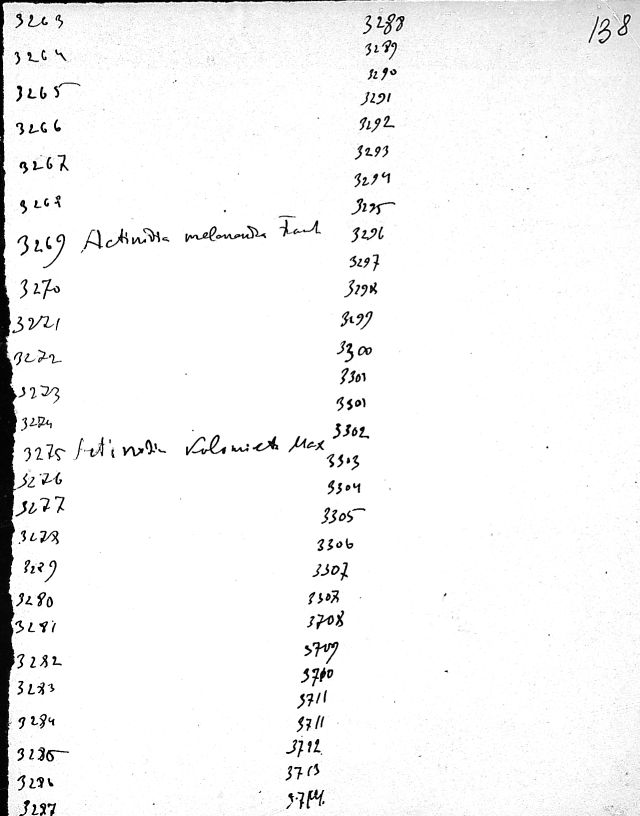 138
3263
3264
3265
3266
3267
3268
3269 Actinidia melanandra Franch
3270
3271
3272
3273
3274
3275 Actinidia Kolomicta Max
3276
3277
3278
3279
3280
3281
3282
3283
3284
3285
3286
3287
3288
3289
3290
3291
3292
3293
3294
3295
3296
3297
3298
3299
3300
3301
3301
3302
3303
3304
3305
3306
3307
3307
3708
3709
3710
3711
3711
3712
3713
3714.